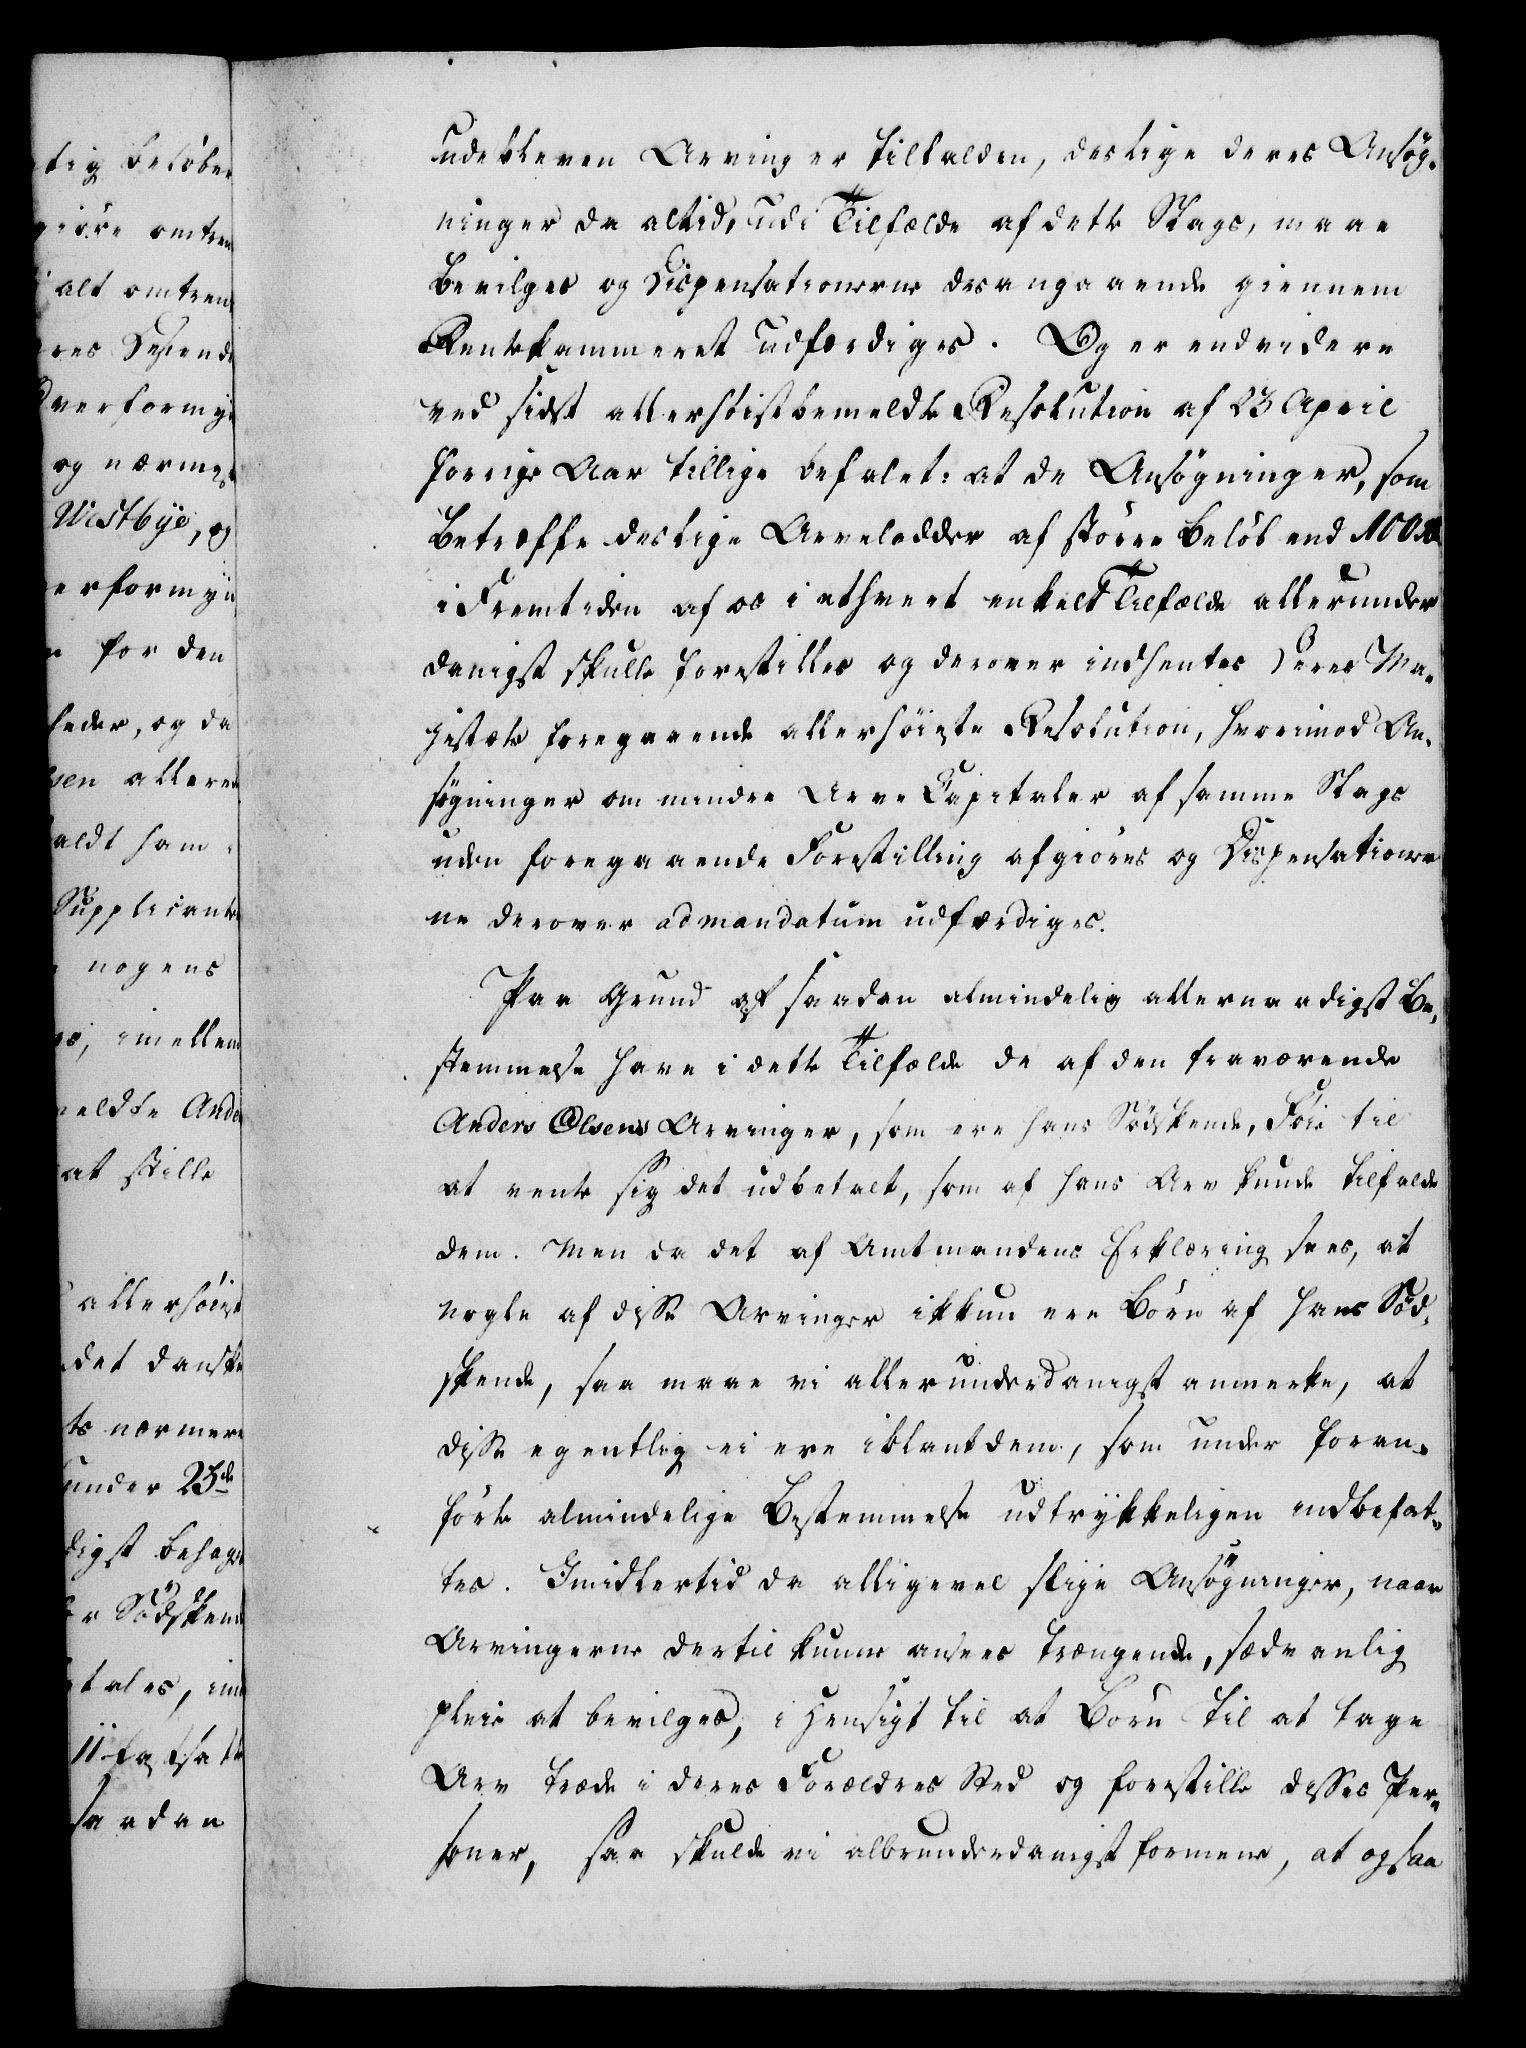 tig beløber
giøre omtren
alt omtrent
res Søskende
Overformyn
og nærmes
Westbye, og
verformyn
for den
heder, og da
sen alleren
aldt ham
Supplicante
nogens
imellem
meldte Ande
at stille
allerhøist
det danske
ts nærmere
under 23de
digst behag
er Sødsken
tales, im
11 fastsatte
saadan
udebleven Arvinger tilfalden, deslige deres Ansøg-
ninger da altid, udi Tilfælde af dette Slags, maae
bevilges og Dispensationerne desangaaende giennem
Rentekammeret udfærdiges. Og er endvidere
ved sidst allerhøistbemeldte Resolution af 23 April
forrige Aar tillige befalet: at de Ansøgninger, som
betræffe deslige Arvelodder af større Beløb end 100 Rd
i Fremtiden af os i ethvert enkelt Tilfælde allerunder
danigst skulle forestilles og derover indhentes Deres Ma-
jestæts foregaaende allerhøieste Resolution, hvorimod An-
søgninger om mindre Arve Capitaler af samme Slags
uden foregaaende Forestilling afgiøres og Dispensationer
ne derover ad mandatum udfærdiges.
Paa Grund af saadan almindelig allernaadigst Be-
stemmelse have i dette Tilfælde de af den fraværende
Anders Olsens Arvinger, som ere hans Sødskende, Føie til
at vente sig det udbetalt, som af hans Arv kunde tilfalde
dem. Men da det af Amtmandens Erklæring sees, at
nogle af disse Arvinger ikkun ere Børn af hans Sød-
skende, saa maae vi allerunderdanigst anmerke, at
disse egentlig ei ere iblant dem, som under foran-
førte almindelige Bestemmelse udtrykkeligen indbefat-
tes. Imidlertid da alligevel slige Ansøgninger, naar
Arvingerne dertil kunne ansees trængende, sædvanlig
pleie at bevilges, i Hensigt til at Børn til at tage
Arv træde i deres Forældres Sted og forestille disses Per-
soner, saa skulde vi allerunderdanigst formene, at ogsaa